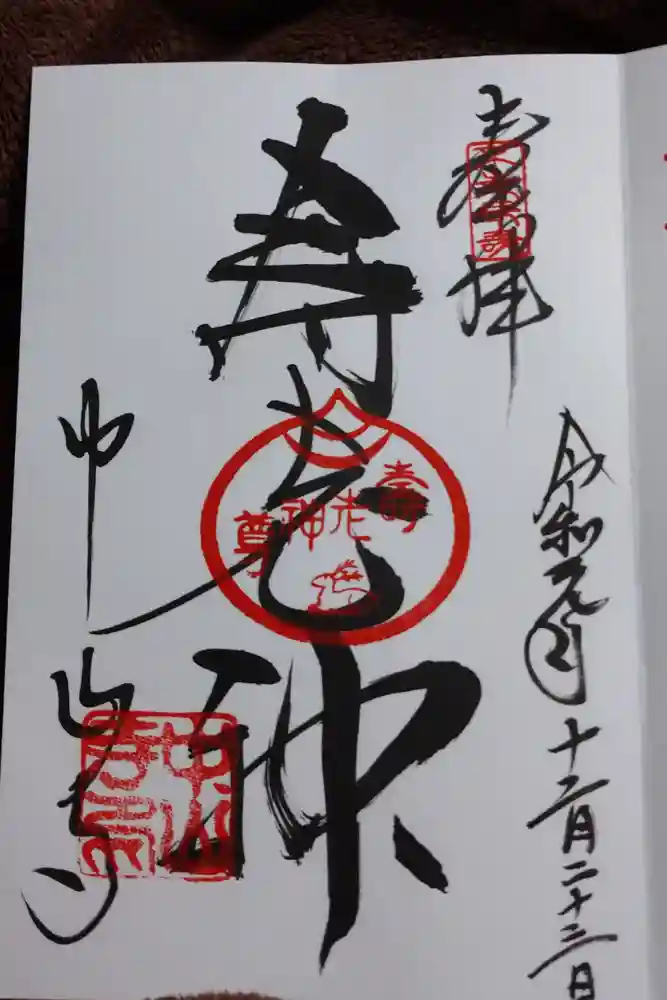 奉拝
令和元年十二月二十三日
寿老神
壽老神尊
中山寺